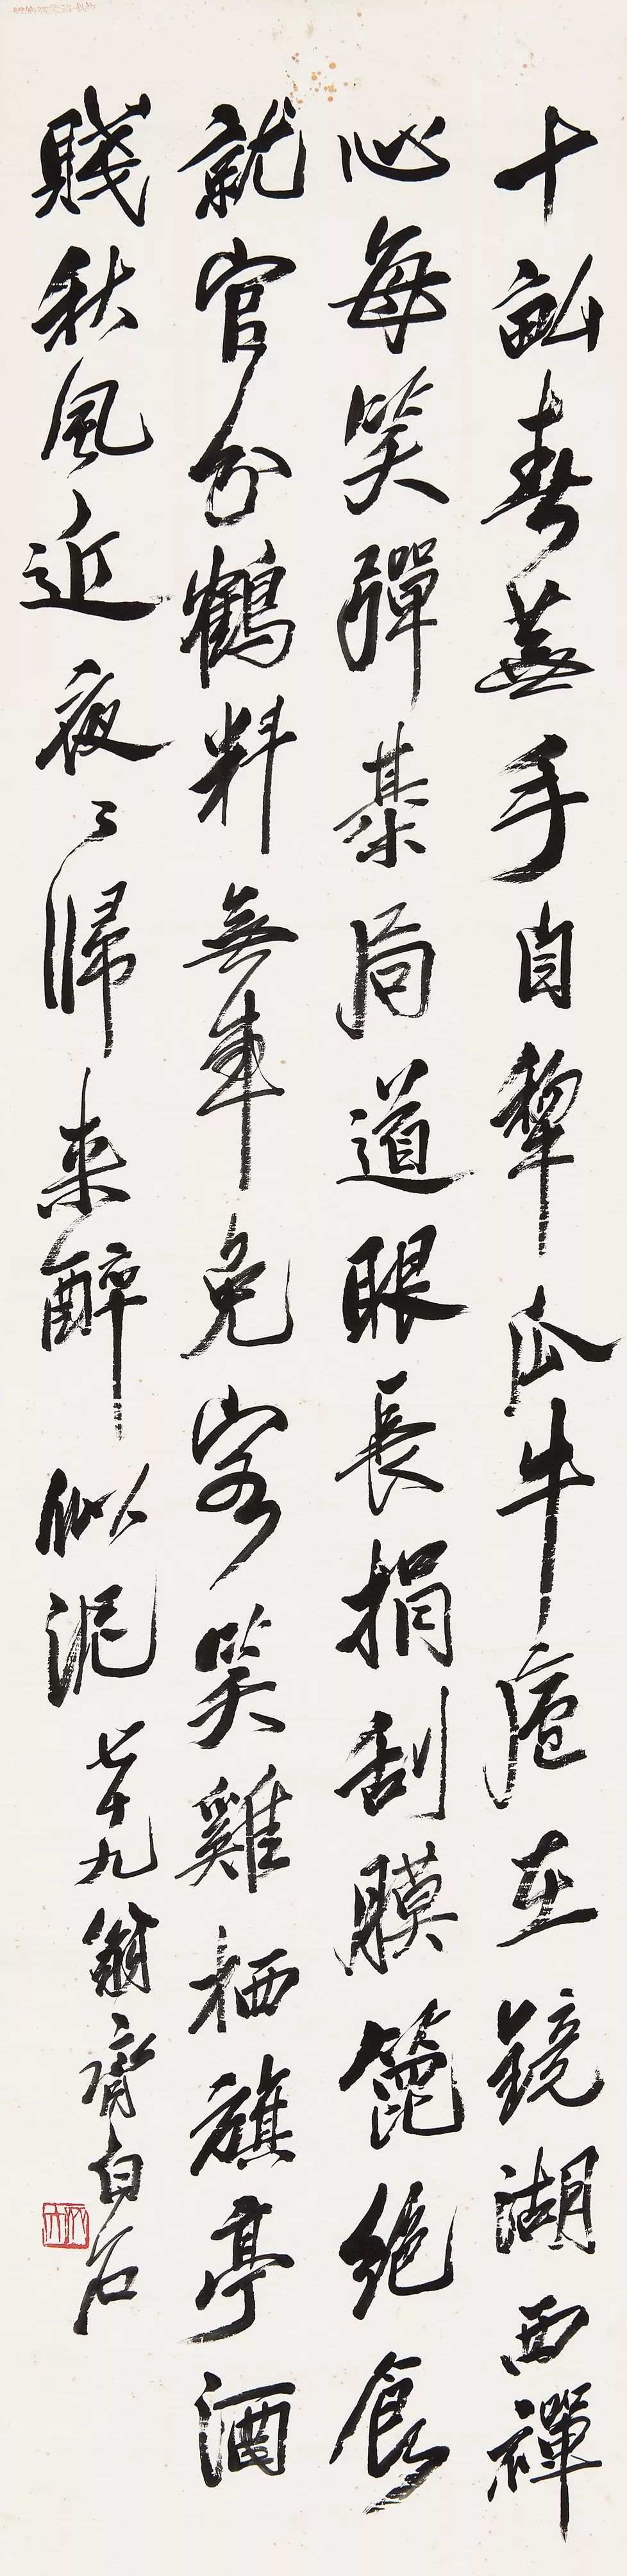 十畝春蕪手自犂瓜牛廬在鏡湖西禪
心每笑彈棊局道眼長捐刮膜篦絕食
就官分鶴料無車免客笑雞栖旗亭酒
賤秋風近夜々歸來醉似泥
七十九翁齊白石